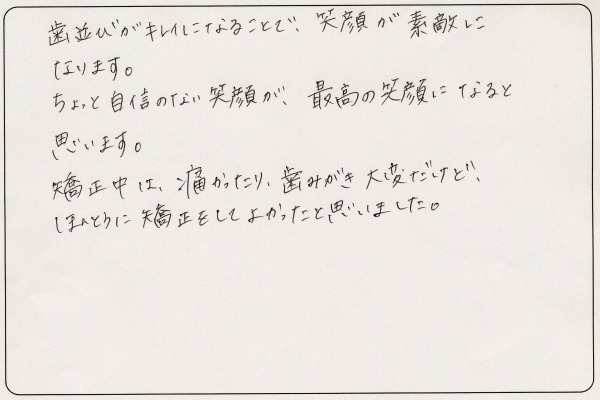 歯並びがキレイになることで、笑顔が素敵に
なります。
ちょっと自信のない笑顔が、最高の笑顔になると
思います。
矯正中は、痛かったり、歯みがき大変だけど、
ほんとうに矯正をしてよかったと思いました。